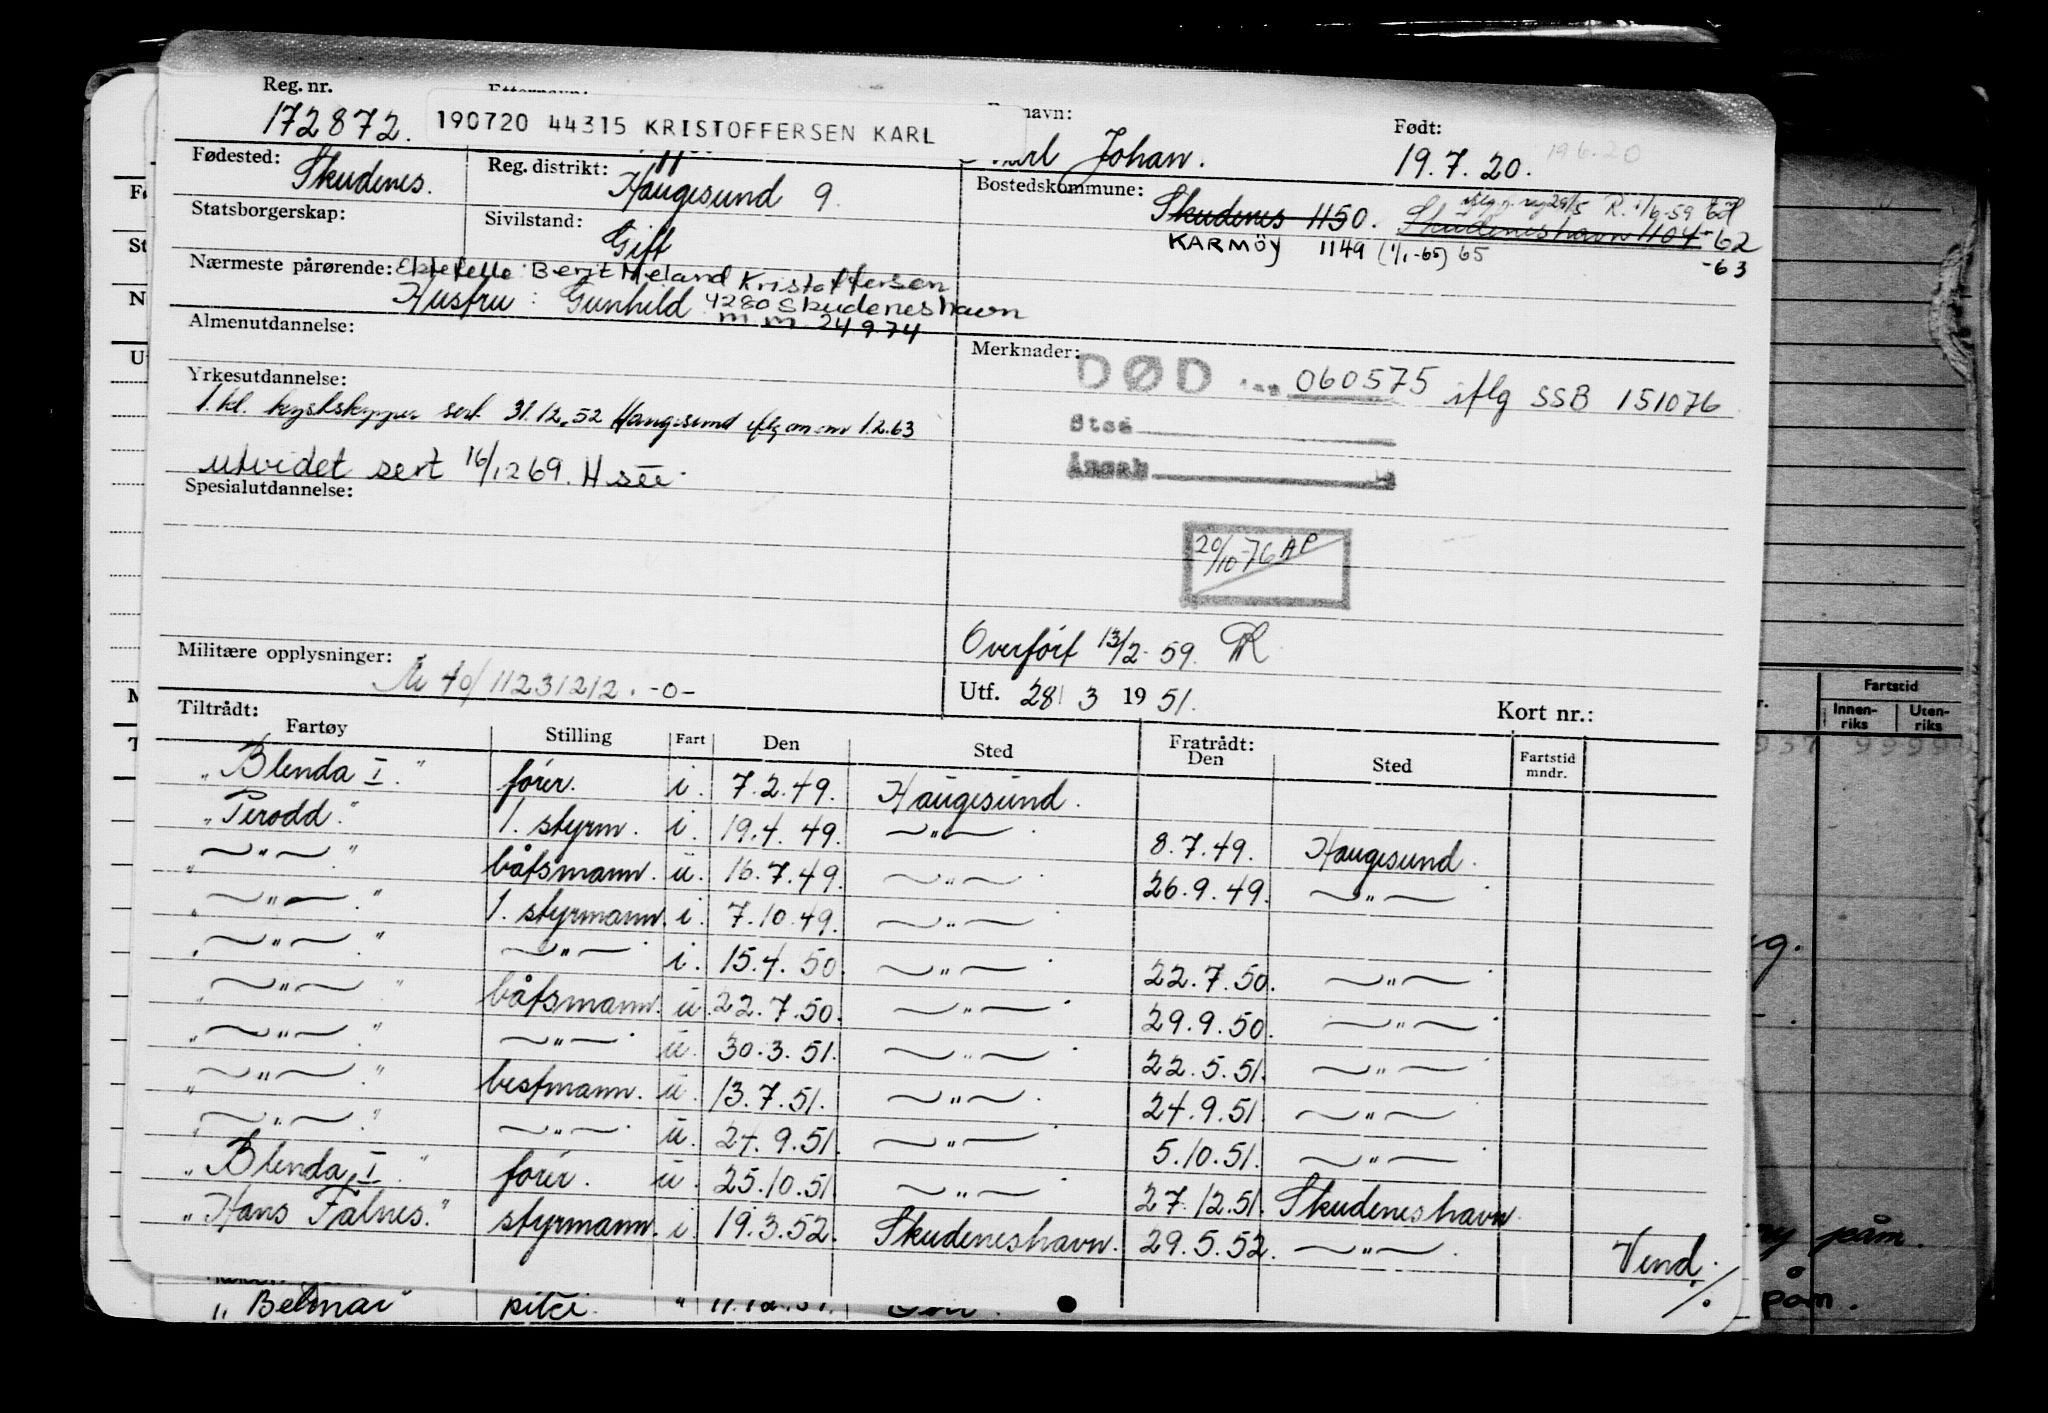 Reg. nr.
172872.
190720 44315 KRISTOFFERSEN KARL
navn:
Johan.
Født:
19.7.20. 19 6.20
Fødested:
Skudenes.
Reg. distrikt:
Haugesund 9.
Bostedskommune:
Skudenes 1150. Skudeneshavn 1104 -62
-63
KARMØY 1149 (1/1-65) 65
Statsborgerskap:
Sivilstand:
Gift
Nærmeste pårørende: Ektefelle: Berit Meland Kristoffersen
Hustru: Gunhild 4280 Skudeneshavn
m.m. 24974
Almenutdannelse:
Merknader:
DØD 060575 iflg SSB 151076
Sted
Årsak
Yrkesutdannelse:
1. kl. kystskipper sert. 31.12.52 Haugesund 1.2.63
utvidet sert 16/1269. H
Spesialutdannelse:
20/10-76 AP
Overført 13/2-59.
Militære opplysninger:
40/11231212. -0-
Utf. 28/ 3 1951.
Kort nr.:
Tiltrådt:
Fartøy Stilling Fart Den Sted Fratrådt: Den Sted Fartstid mndr.
„Blenda I.“ fører. i. 7.2.49. Haugesund.
„Perodd.“ 1. styrm. i. 19.4.49. —〃—. 8.7.49. Haugesund.
„—〃—.“ båtsmann. u. 16.7.49. —〃—. 26.9.49. —〃—.
„—〃—.“ 1. styrmann. i. 7.10.49. —〃—.
„—〃—.“ —〃—. i. 15.4.50. —〃—. 22.7.50. —〃—.
„—〃—.“ båtsmann. u. 22.7.50. —〃—. 29.9.50. —〃—.
„—〃—.“ —〃—. u. 30.3.51. —〃—. 22.5.51. —〃—.
„—〃—.“ bestmann. u. 13.7.51. —〃—. 24.9.51. —〃—.
„—〃—.“ —〃—. u. 24.9.51. —〃—. 5.10.51. —〃—.
„Blenda I.“ fører. u. 25.10.51. —〃—. 27.12.51. Skudeneshavn.
„Hans Falnes.“ styrmann. i. 19.3.52. Skudeneshavn. 29.5.52. —〃—.
Vend.
„Belmar“
Fartstid
Innen-
riks
Uten-
riks
påm.
påm.